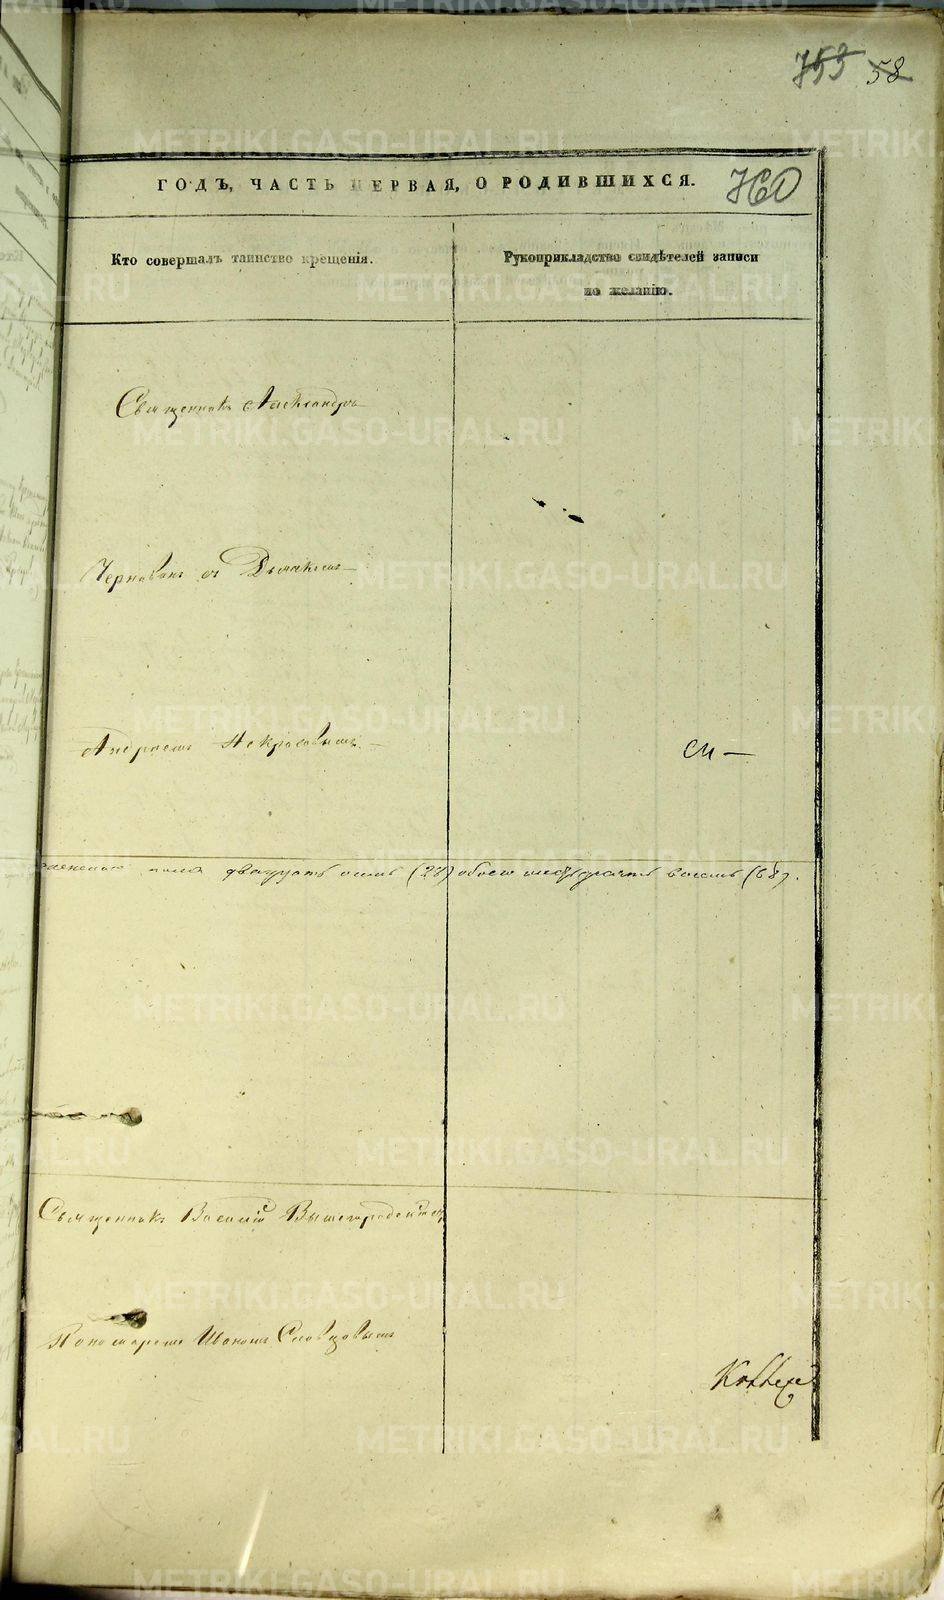 753 58
ГОДЪ, ЧАСТЬ ПЕРВАЯ, О РОДИВШИХСЯ.
760
Кто совершалъ таинство крещенія.
Рукоприкладство свидѣтелей записи
по желанію.
Священникъ Александръ
съ Дьякомъ
Андреемъ Некрасовымъ
пола двадцать осмь (28) обоего шестьдесятъ восемь (68).
Священникъ Василій
Пономаремъ Иваномъ Словцовымъ
METRIKI.GASO-URAL.RU